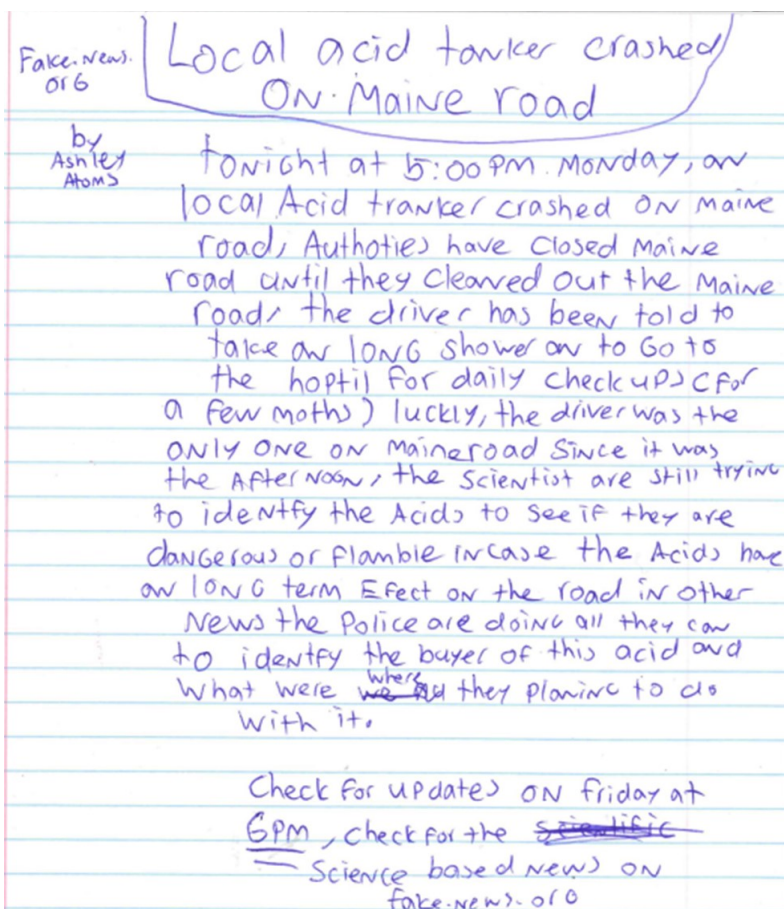 Local acid tanker crashed
ON. Maine road
Fake.News.
org
by
Ashley
Atoms
tonight at 5:00 PM. MONDAY, an
local Acid tranker crashed ON Maine
road, Authoties have closed Maine
road until they cleaved out the Maine
road, the driver has been told to
take an LONG shower an to Go to
the hoptil for daily check ups (for
a few moths) luckly, the driver was the
ONLY ONE ON Maineroad Since it was
the AfterNOON, the Scientist are still trying
to identfy the Acids to see if they are
dangerous or flamble incase the Acids have
an lONG term Efect on the road in other
News the Police are doing all they can
to identfy the buyer of this acid and
What were where they planing to do
With it.
Check for updates ON friday at
6PM, check for the scientific
Science based News on
fake.news.org